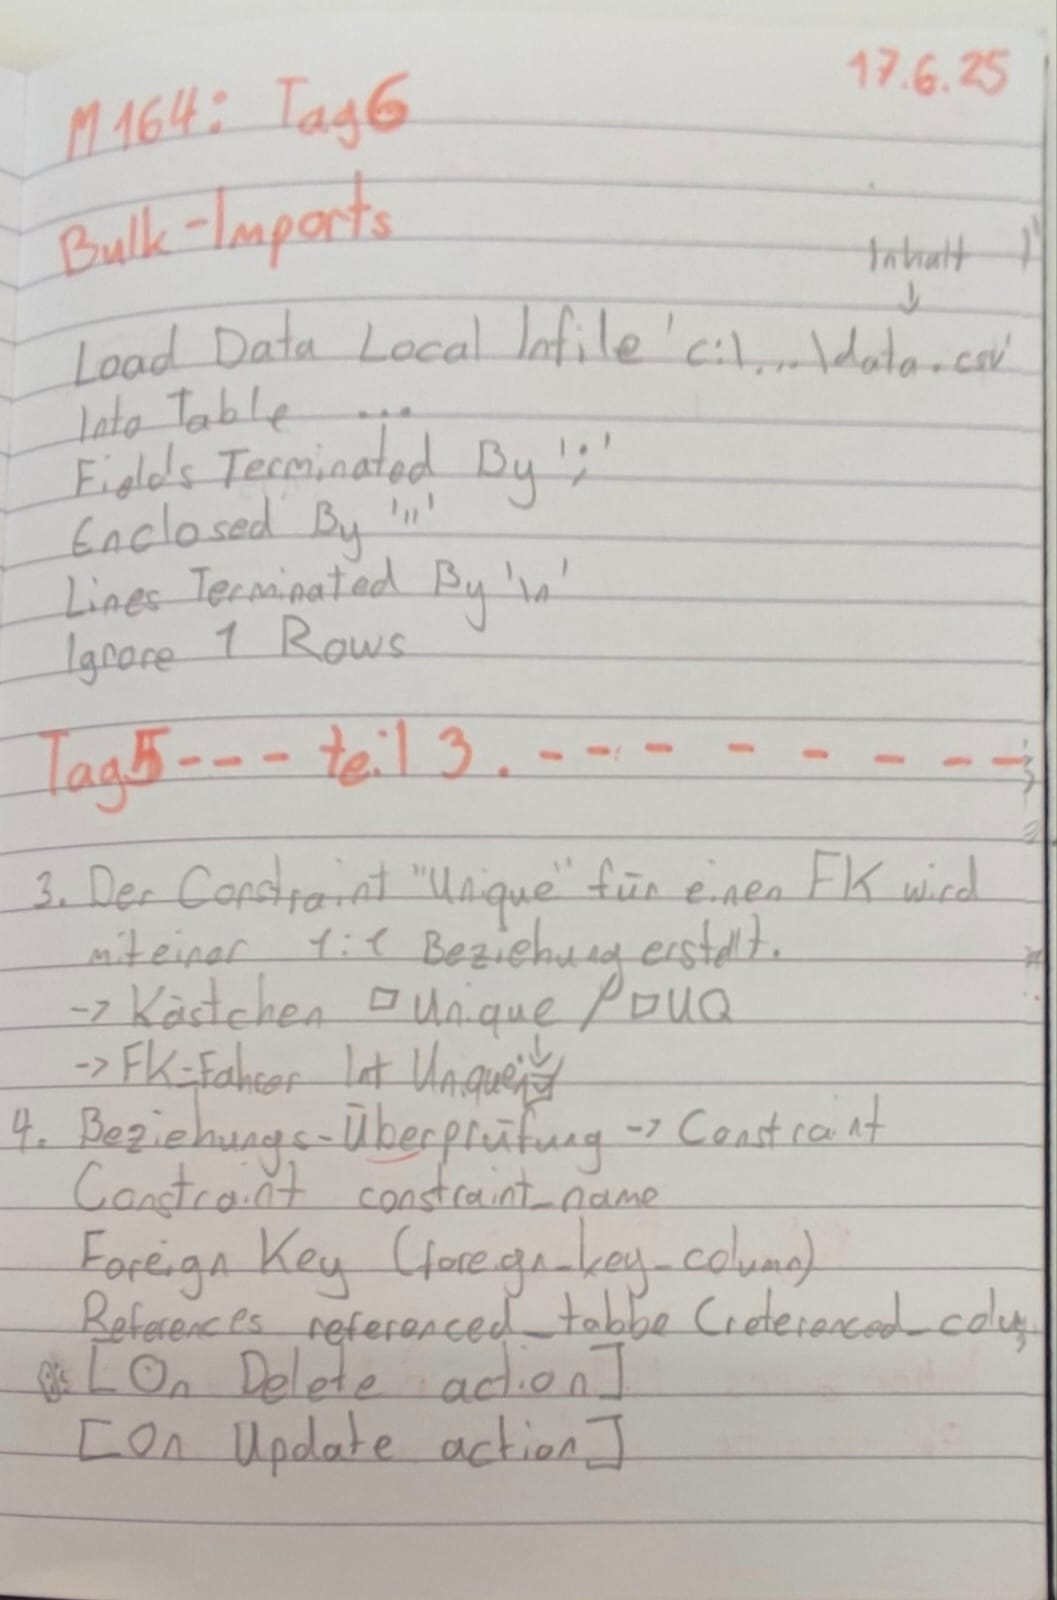 17.6.25
M164: Tag6
Bulk-Imports
Inhalt
↓
Load Data Local Infile 'c:\...\data.csv'
Into Table ...
Fields Terminated By ';'
Enclosed By '"'
Lines Terminated By '\n'
Ignore 1 Rows
Tag5--- teil 3. - - - - - - - -
3. Der Constraint "Unique" für einen FK wird
mit einer 1:1 Beziehung erstellt.
-> Kästchen □ Unique / □ UQ
-> FK-Fahrer Int Unique
4. Beziehungs-Überprüfung -> Constraint
Constraint constraint_name
Foreign Key (foreign_key_column)
References referenced_tabbe (referenced_colu
[On Delete action]
[On Update action]